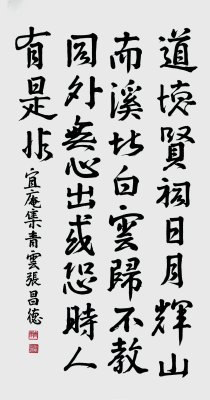 道德賢祠日月輝山
南溪北白雲歸不教
外無心出或恐時人
有是非
宜庵集青雲張昌德